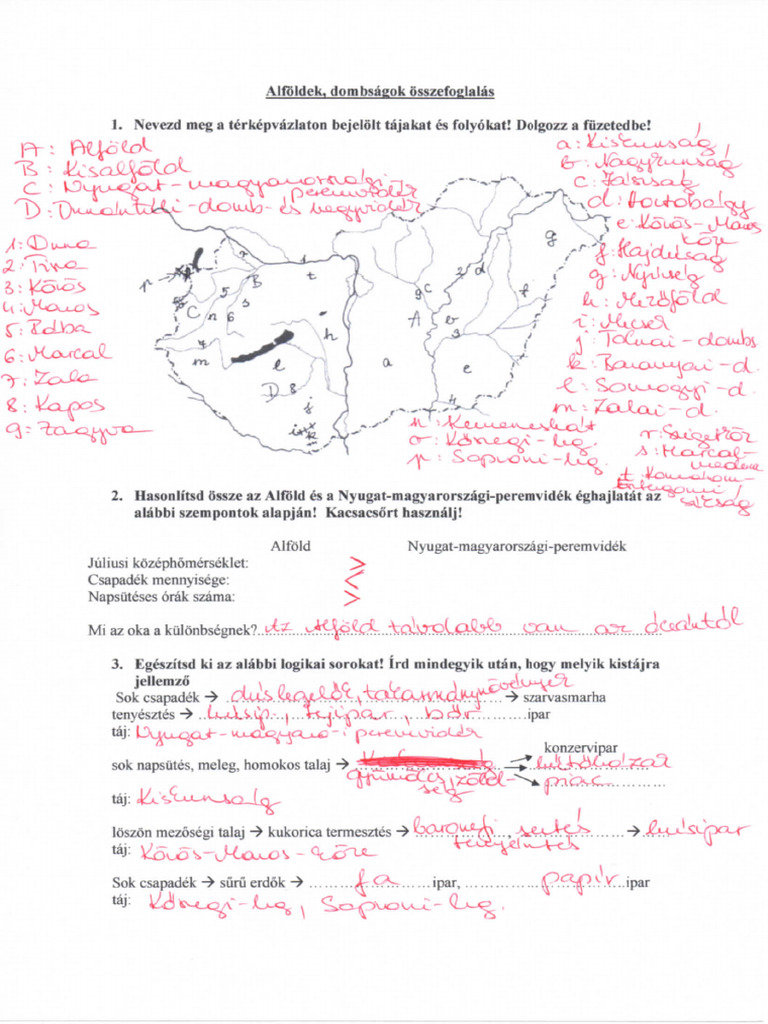 Alföldek, dombságok összefoglalás
1. Nevezd meg a térképvázlaton bejelölt tájakat és folyókat! Dolgozz a füzetedbe!
A: Alföld
B: Kisalföld
C: Nyugat-magyarországi-peremvidék
D: Dunántúli-domb- és hegyvidék
1: Duna
2: Tisza
3: Körös
4: Maros
5: Rába
6: Marcal
7: Zala
8: Kapos
9: Zagyva
a: Kiskunság
b: Nagykunság
c: Jászság
d: Hortobágy
e: Körös-Maros köze
f: Hajdúság
g: Nyírség
h: Mezőföld
i: Mecsek
j: Tolnai-dombs
k: Baranyai-d.
l: Somogyi-d.
m: Zalai-d.
n: Kemeneshát
o: Kőszegi-hg.
p: Soproni-hg.
r: Szigetköz
s: Marcal-medence
t: Komárom-Esztergomi síkság
2. Hasonlítsd össze az Alföld és a Nyugat-magyarországi-peremvidék éghajlatát az
alábbi szempontok alapján! Kacsacsőrt használj!
Alföld Nyugat-magyarországi-peremvidék
Júliusi középhőmérséklet: >
Csapadék mennyisége: <
Napsütéses órák száma: >
Mi az oka a különbségnek? Az Alföld távolabb van az óceántól
3. Egészítsd ki az alábbi logikai sorokat! Írd mindegyik után, hogy melyik kistájra
jellemző
Sok csapadék → dús legelők, takarmánynövények → szarvasmarha
tenyésztés → húsip., tejipar, bőr ipar
táj: Nyugat-magyaro-i peremvidék
konzervipar
sok napsütés, meleg, homokos talaj → gyümölcs, zöldség → hűtőházak
piac
táj: Kiskunság
löszön mezőségi talaj → kukorica termesztés → baromfi, sertés tenyésztés → húsipar
táj: Körös-Maros-köze
Sok csapadék → sűrű erdők → fa ipar, papír ipar
táj: Kőszegi-hg, Soproni-hg.